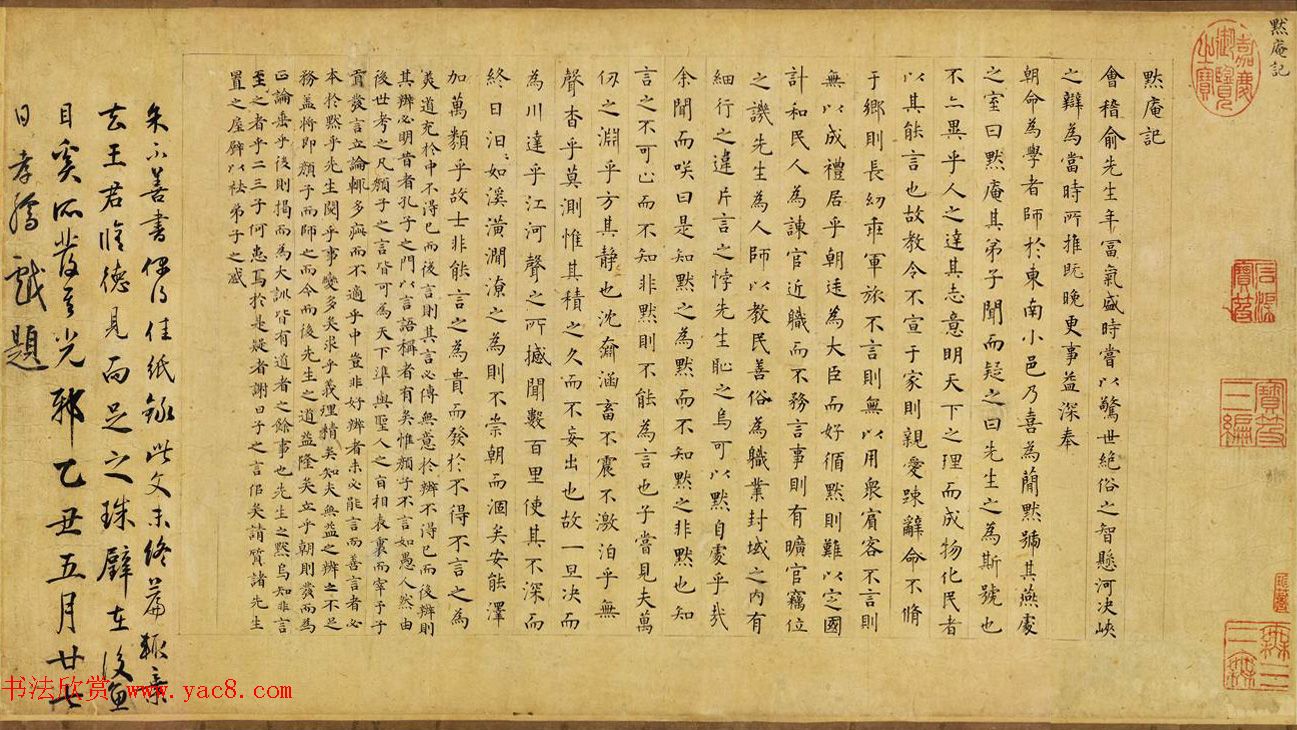 默庵記
默庵記
會稽俞先生年富氣盛時嘗以驚世絕俗之智懸河决峽
之辯為當時所推旣晚更事益深奉
朝命為學者師於東南小邑乃喜為簡默號其燕處
之室曰默庵其弟子聞而疑之曰先生之為斯號也
不亦異乎人之達其志意明天下之理而成物化民者
以其能言也故教令不宣于家則親愛踈辭命不脩
于鄉則長幼乖軍旅不言則無以用衆賓客不言則
無以成禮居乎朝廷為大臣而好循默則難以定國
計和民人為諫官近職而不務言事則有曠官竊位
之譏先生為人師以教民善俗為職業封域之內有
細行之違片言之悖先生恥之烏可以默自處乎哉
余聞而咲曰是知默之為默而不知默之非默也知
言之不可已而不知非默則不能為言也子嘗見夫萬
仞之淵乎方其静也沈奫涵畜不震不激泊乎無
聲杳乎莫測惟其積之久而不妄出也故一旦决而
為川達乎江河聲之所撼聞數百里使其不深而
終日汩汩如溪潢澗潦之為則不崇朝而涸矣安能澤
加萬類乎故士非能言之為貴而發於不得不言之為
美道充於中不得已而後言則其言必傳無意於辨不得已而後辨則
其辨必明昔者孔子之門以言語稱者有矣惟顏子不言如愚人然由
後世考之凡顏子之言皆可為天下準與聖人之旨相表裏而宰予子
貢發言立論輒多疵而不適乎中豈非好辨者未必能言而善言者必
本於默乎先生閱乎事變多矣求乎義理精矣知夫無益之辨之不足
務盖將即顏子而師之而今而後先生之道益隆矣立乎朝則發而為
正論垂乎後則揭而為大訓皆有道者之餘事也先生之默烏知非言
之至者乎二三子何患焉於是疑者謝曰子之言信矣請質諸先生
置之屋壁以祛弟子之惑
朱不善書偶得佳紙錄此文未終篇輒棄
去王君脩德見而足之珠璧在後魚
目奚所發其光邪乙丑五月廿七
日孝孺戲題
嘉慶御覽之寶
石渠寶笈
寶笈三編
書法欣赏 www.yac8.com